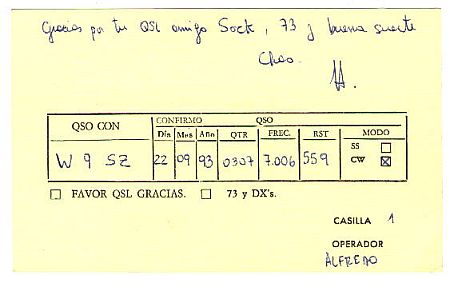 Gracias por tu QSL amigo Sock, 73 y buena suerte
Chao.
QSO CON CONFIRMO QSO
Día Mes Año QTR FREC. RST MODO
W9SZ 22 09 93 0307 7.006 559 SS ☐
CW ☒
☐ FAVOR QSL GRACIAS. ☐ 73 y DX's.
CASILLA 1
OPERADOR
ALFREDO